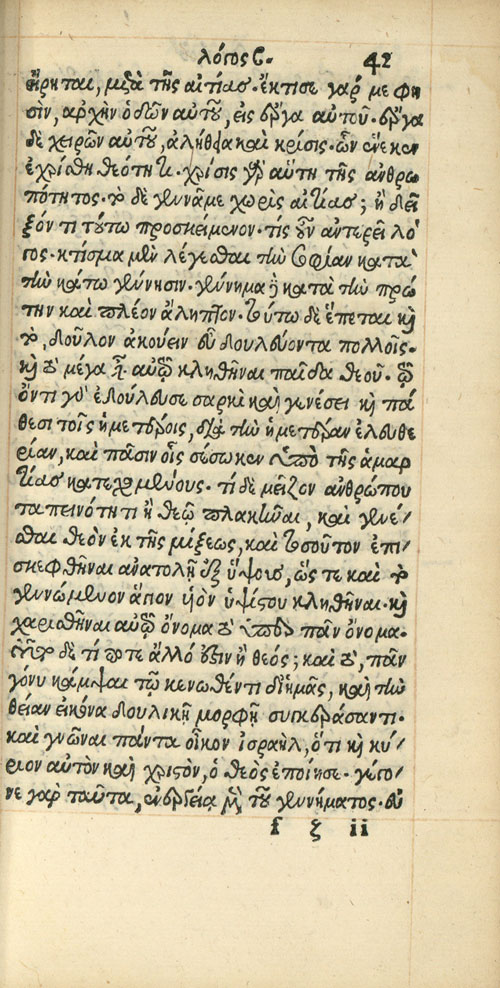 λόγος ϛ. 42
εἴρηται, μετὰ τῆς αἰτίας. ἔκτισε γάρ με φη
σὶν, ἀρχὴν ὁδῶν αὐτοῦ, εἰς ἔργα αὐτοῦ. ἔργα
δὲ χειρῶν αὐτοῦ, ἀλήθεια καὶ κρίσις. ὧν ἕνεκεν
ἐχρίσθη θεότητι. χρίσις γὰρ αὕτη τῆς ἀνθρω
πότητος. τὸ δὲ γεννᾶ με χωρὶς αἰτίας; ἢ δεῖ
ξόν τι τούτω προσκείμενον. τίς οὖν ἀντερεῖ λό
γος. κτίσμα μὲν λέγεσθαι τὴν σοφίαν κατὰ
τὴν κάτω γέννησιν. γέννημα δὲ κατὰ τὴν πρώ
την καὶ πλέον ἄληπτον. τούτω δὲ ἕπεται καὶ
τὸ, δοῦλον ἀκούειν εὖ δουλεύοντα πολλοῖς.
καὶ τὸ μέγα εἶναι αὐτῷ κληθῆναι παῖδα θεοῦ. τῷ
ὄντι γὰρ ἐδούλευσε σαρκὶ καὶ γενέσει καὶ πά
θεσι τοῖς ἡμετέροις, διὰ τὴν ἡμετέραν ἐλευθε
ρίαν, καὶ πᾶσιν οἷς σέσωκεν ὑπὸ τῆς ἁμαρ
τίας κατεχομένους. τί δὲ μεῖζον ἀνθρώπου
ταπεινότητι ἢ θεῷ πλακῆναι, καὶ γενέ/
σθαι θεὸν ἐκ τῆς μίξεως, καὶ τοσοῦτον ἐπι/
σκεφθῆναι ἀνατολῇ ἐξ ὕψους, ὥς τε καὶ τὸ
γεννώμενον ἅγιον υἱὸν ὑψίστου κληθῆναι. καὶ
χαρισθῆναι αὐτῷ ὄνομα τὸ ὑπὲρ πᾶν ὄνομα.
τοῦτο δὲ τί ποτε ἄλλό ἐστιν ἢ θεός; καὶ τὸ, πᾶν
γόνυ κάμψαι τῷ κενωθέντι δι' ἡμᾶς, καὶ τὴν
θείαν εἰκόνα δουλικῇ μορφῇ συγκεράσαντι.
καὶ γνῶναι πάντα οἶκον ἰσραὴλ, ὅτι καὶ κύ/
ριον αὐτὸν καὶ χριστὸν, ὁ θεὸς ἐποίησε. γέγο/
νε γὰρ ταῦτα, ἐνεργείᾳ μὲν τοῦ γεννήματος. εὐ
f ξ ii